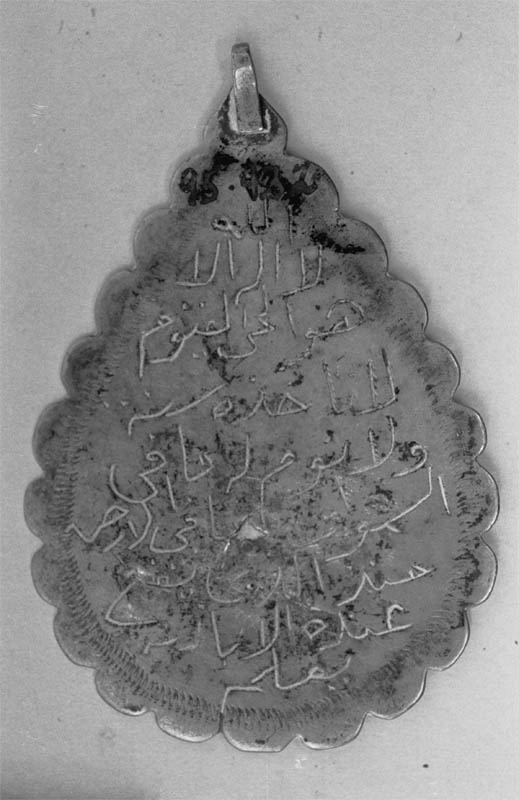 الله
لا اله الا
هو الحي القيوم
لا تاخذه سنة
ولا نوم له ما في
السموات وما في الارض
من ذا الذي يشفع
عنده الا باذنه
يعلم